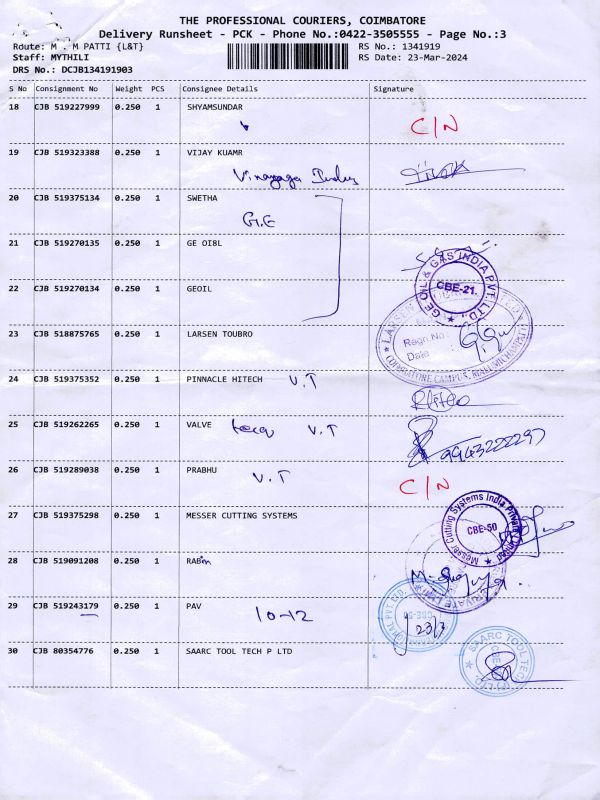 THE PROFESSIONAL COURIERS, COIMBATORE
Delivery Runsheet - PCK - Phone No.:0422-3505555 - Page No.:3
Route: M . M PATTI {L&T} RS No.: 1341919
Staff: MYTHILI RS Date: 23-Mar-2024
DRS No.: DCJB134191903
S No Consignment No Weight PCS Consignee Details Signature
18 CJB 519227999 0.250 1 SHYAMSUNDAR
C/N
19 CJB 519323388 0.250 1 VIJAY KUAMR
Vinayaga
20 CJB 519375134 0.250 1 SWETHA
G.E
21 CJB 519270135 0.250 1 GE OIBL
22 CJB 519270134 0.250 1 GEOIL
GE OIL & GAS INDIA PVT. LTD.
CBE-21.
23 CJB 518875765 0.250 1 LARSEN TOUBRO
Regn No
Date
COIMBATORE CAMPUS,
24 CJB 519375352 0.250 1 PINNACLE HITECH V.T
25 CJB 519262265 0.250 1 VALVE V.T
26 CJB 519289038 0.250 1 PRABHU
V.T
C/N
27 CJB 519375298 0.250 1 MESSER CUTTING SYSTEMS
Messer Cutting Systems India Private Limited
CBE-50
28 CJB 519091208 0.250 1
29 CJB 519243179 0.250 1 PAV
10-12
23/3
30 CJB 80354776 0.250 1 SAARC TOOL TECH P LTD
SAARC TOOL TECH (P) LTD